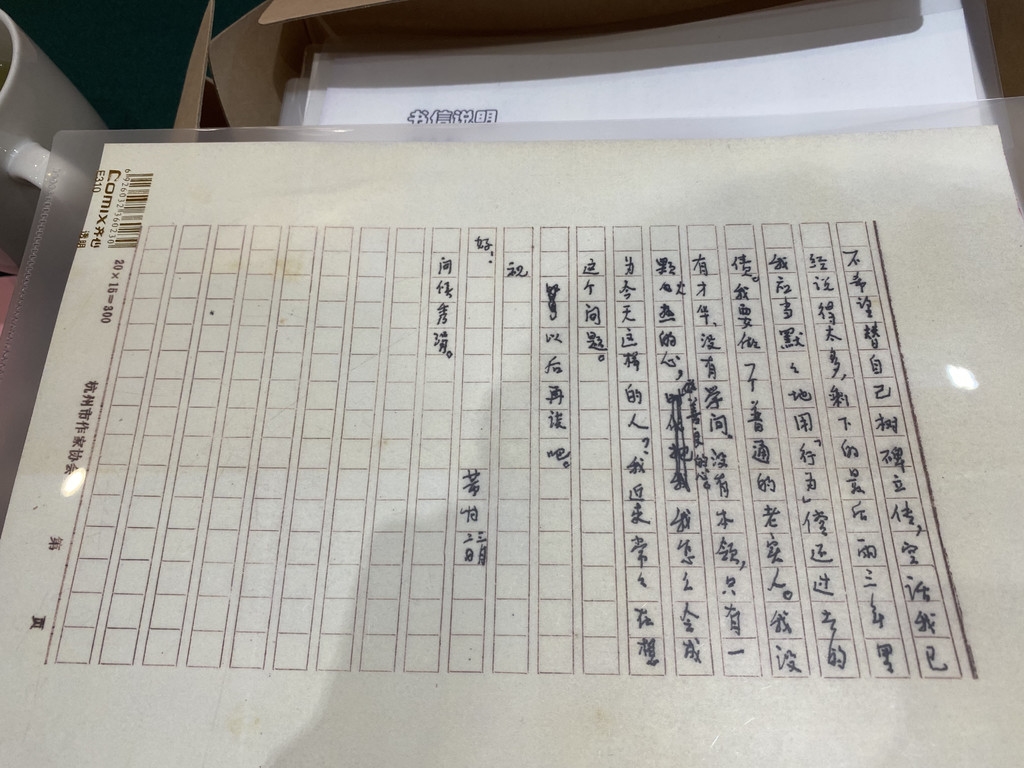 书信说明
不希望替自己树碑立传,空话我已
经说得太多,剩下的最后两三年里
我应当默々地用「行为」偿还过去的
债。我要做个普通的老实人。我没
有才华,没有学问,没有本领,只有一
颗火热的心,善良的心。我怎么会成
为今天这样的人?我近来常々在想
这个问题。
以后再谈吧。
祝
好!
芾甘
三月
二日
问候秀涓。
20×15=300
杭州市作家协会
第
页
Comix齐心
E310
透明
6926032360210